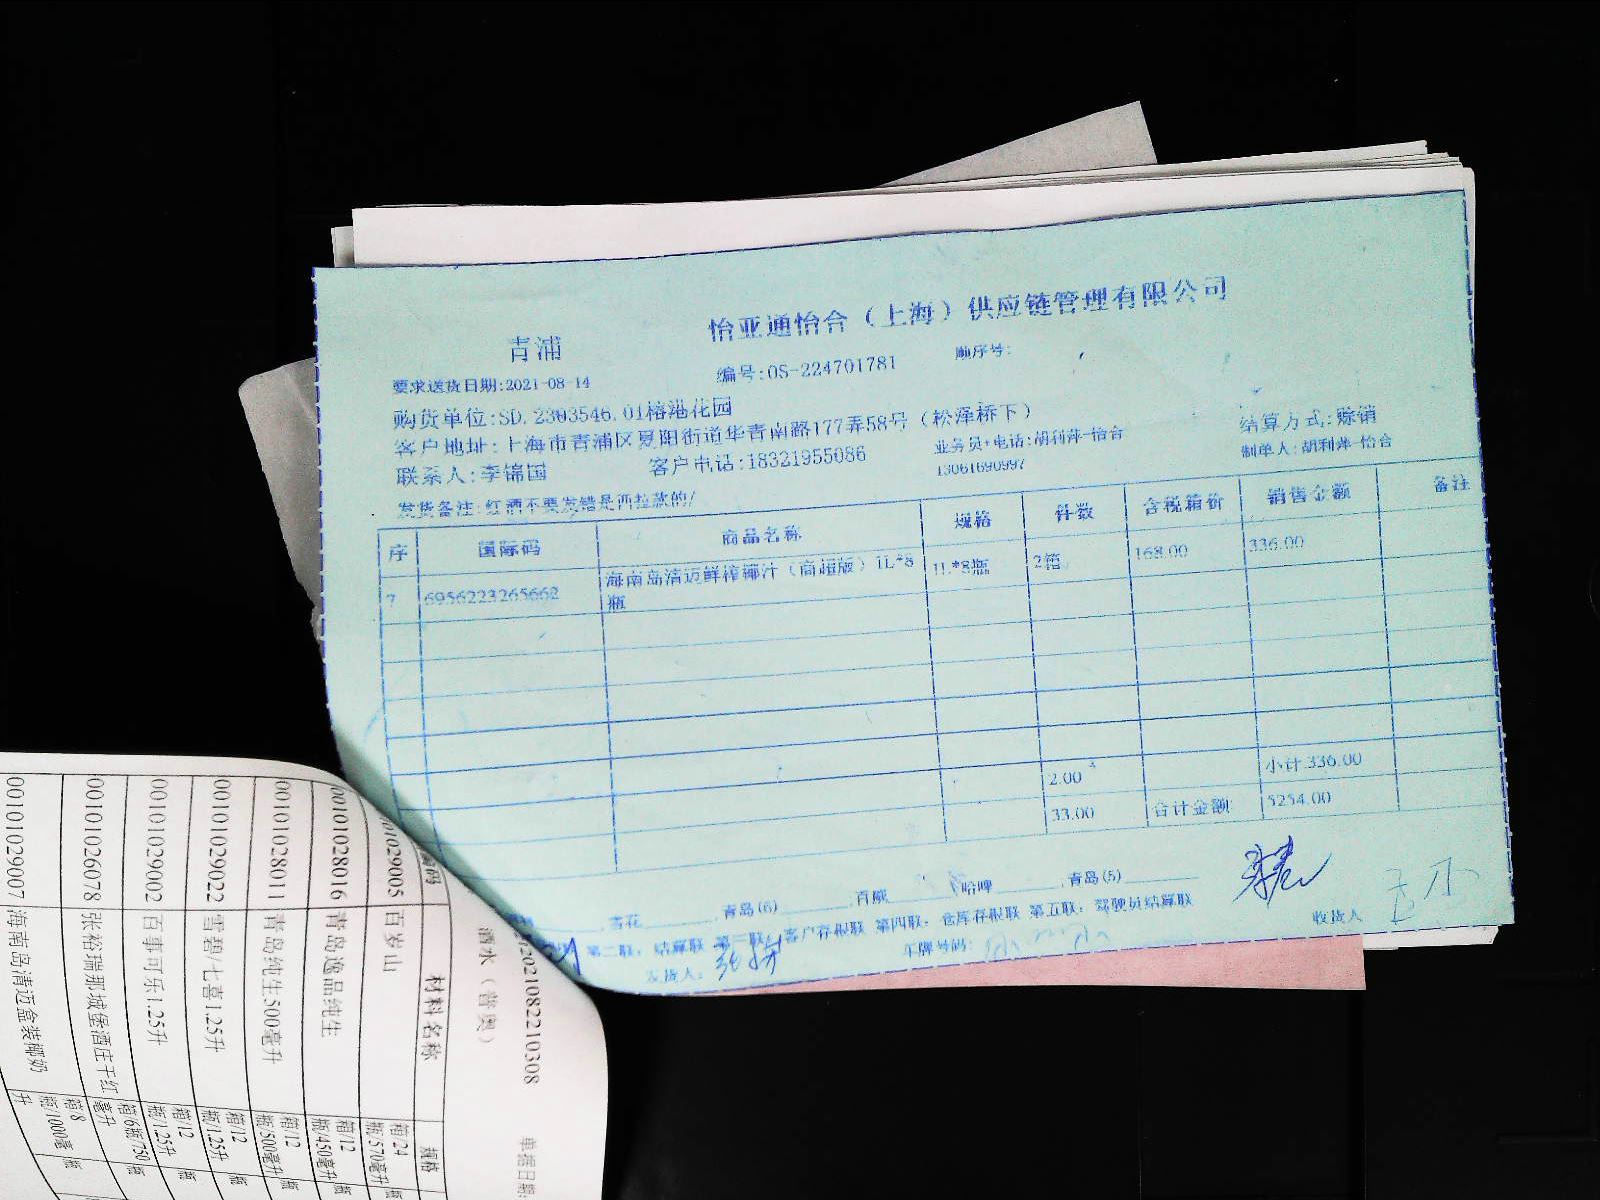 怡亚通怡合（上海）供应链管理有限公司
青浦
要求送货日期:2021-08-14 编号:OS-224701781 顺序号:
购货单位:SD.2303546.01椿港花园
客户地址:上海市青浦区夏阳街道华青南路177弄58号（松泽桥下） 结算方式:赊销
联系人:李锦国 客户电话:18321955086 业务员+电话:胡利萍-怡合 制单人:胡利萍-怡合
13061690997
发货备注:红酒不要发错是西拉款的/
序 国际码 商品名称 规格 件数 含税箱价 销售金额 备注
7 6956223265662 海南岛清迈鲜榨椰汁（商超版）1L*8 1L*8瓶 2箱 168.00 336.00
瓶
2.00 小计 336.00
33.00 合计金额 5254.00
雪花 青岛(6) 百威 哈啤 青岛(5)
第二联: 结算联 第三联: 客户存根联 第四联: 仓库存根联 第五联: 驾驶员结算联
发货人: 车牌号码: 收货人
2021082210308
酒水（普奥） 单据日期:
编码 材料名称 规格
00101029005 百岁山 箱/24瓶/570毫升
00101028016 青岛逸品纯生 箱/12瓶/450毫升 瓶
00101028011 青岛纯生500毫升 箱/12瓶/500毫升 瓶
00101029022 雪碧/七喜1.25升 箱/12瓶/1.25升 瓶
00101029002 百事可乐1.25升 箱/12瓶/1.25升 瓶
00101026078 张裕瑞那城堡酒庄干红 箱/6瓶/750毫升 瓶
00101029007 海南岛清迈盒装椰奶 箱/8瓶/1000毫升 瓶